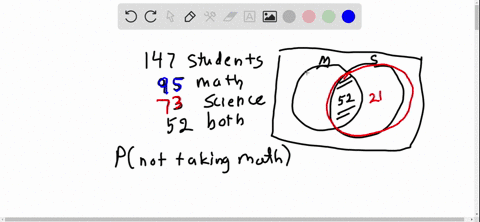 147 students
95 math
73 science
52 both
P(not taking math)
M S
52 21